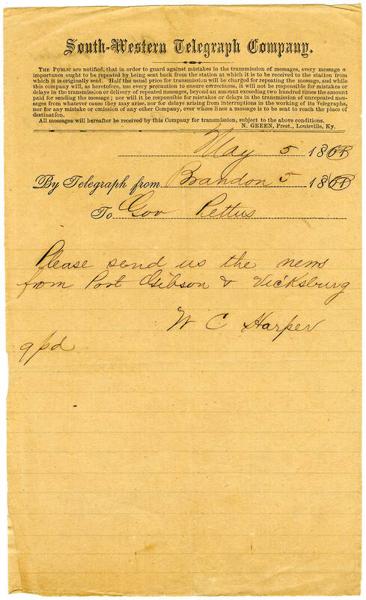 South-Western Telegraph Company.
THE PUBLIC are notified, that in order to guard against mistakes in the transmission of messages, every message of
importance ought to be repeated by being sent back from the station at which it is to be received to the station from
which it is originally sent. Half the usual price for transmission will be charged for repeating the message, and while
this company will, as heretofore, use every precaution to ensure correctness, it will not be responsible for mistakes or
delays in the transmission or delivery of repeated messages, beyond an amount exceeding two hundred times the amount
paid for sending the message; nor will it be responsible for mistakes or delays in the transmission of unrepeated
messages from whatever cause they may arise, nor for delays arising from interruptions in the working of its Telegraphs,
nor for any mistake or omission of any other Company, over whose lines a message is to be sent to reach the place of
destination.
All messages will hereafter be received by this Company for transmission, subject to the above conditions.
N. GREEN, Prest., Louisville, Ky.
May 5 1863
By Telegraph from Brandon 5 1863
To Gov Pettus
Please send us the news
from Port Gibson & Vicksburg
W C Harper
9pd